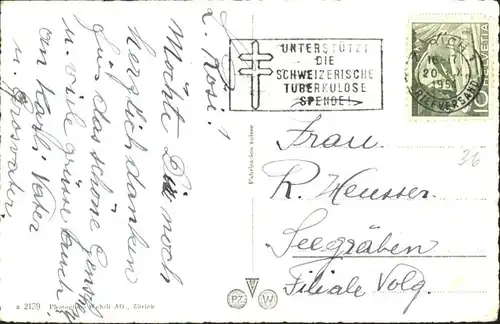 L. Rösi!
Möchte Dir noch
herzlich danken
für das schöne
u. viele grüsse auch
an Karli Vater
u. Grosvater
UNTERSTÜTZT
DIE
SCHWEIZERISCHE
TUBERKULOSE
SPENDE!
ZÜRICH 1
20
195
BRIEFVERSAND
10
HELVETIA
Fabrication suisse
36
Frau
R. Heusser
Seegräben
Filiale Volg.
a 2159 Photogr. Wehrli AG., Zürich
PZ
W